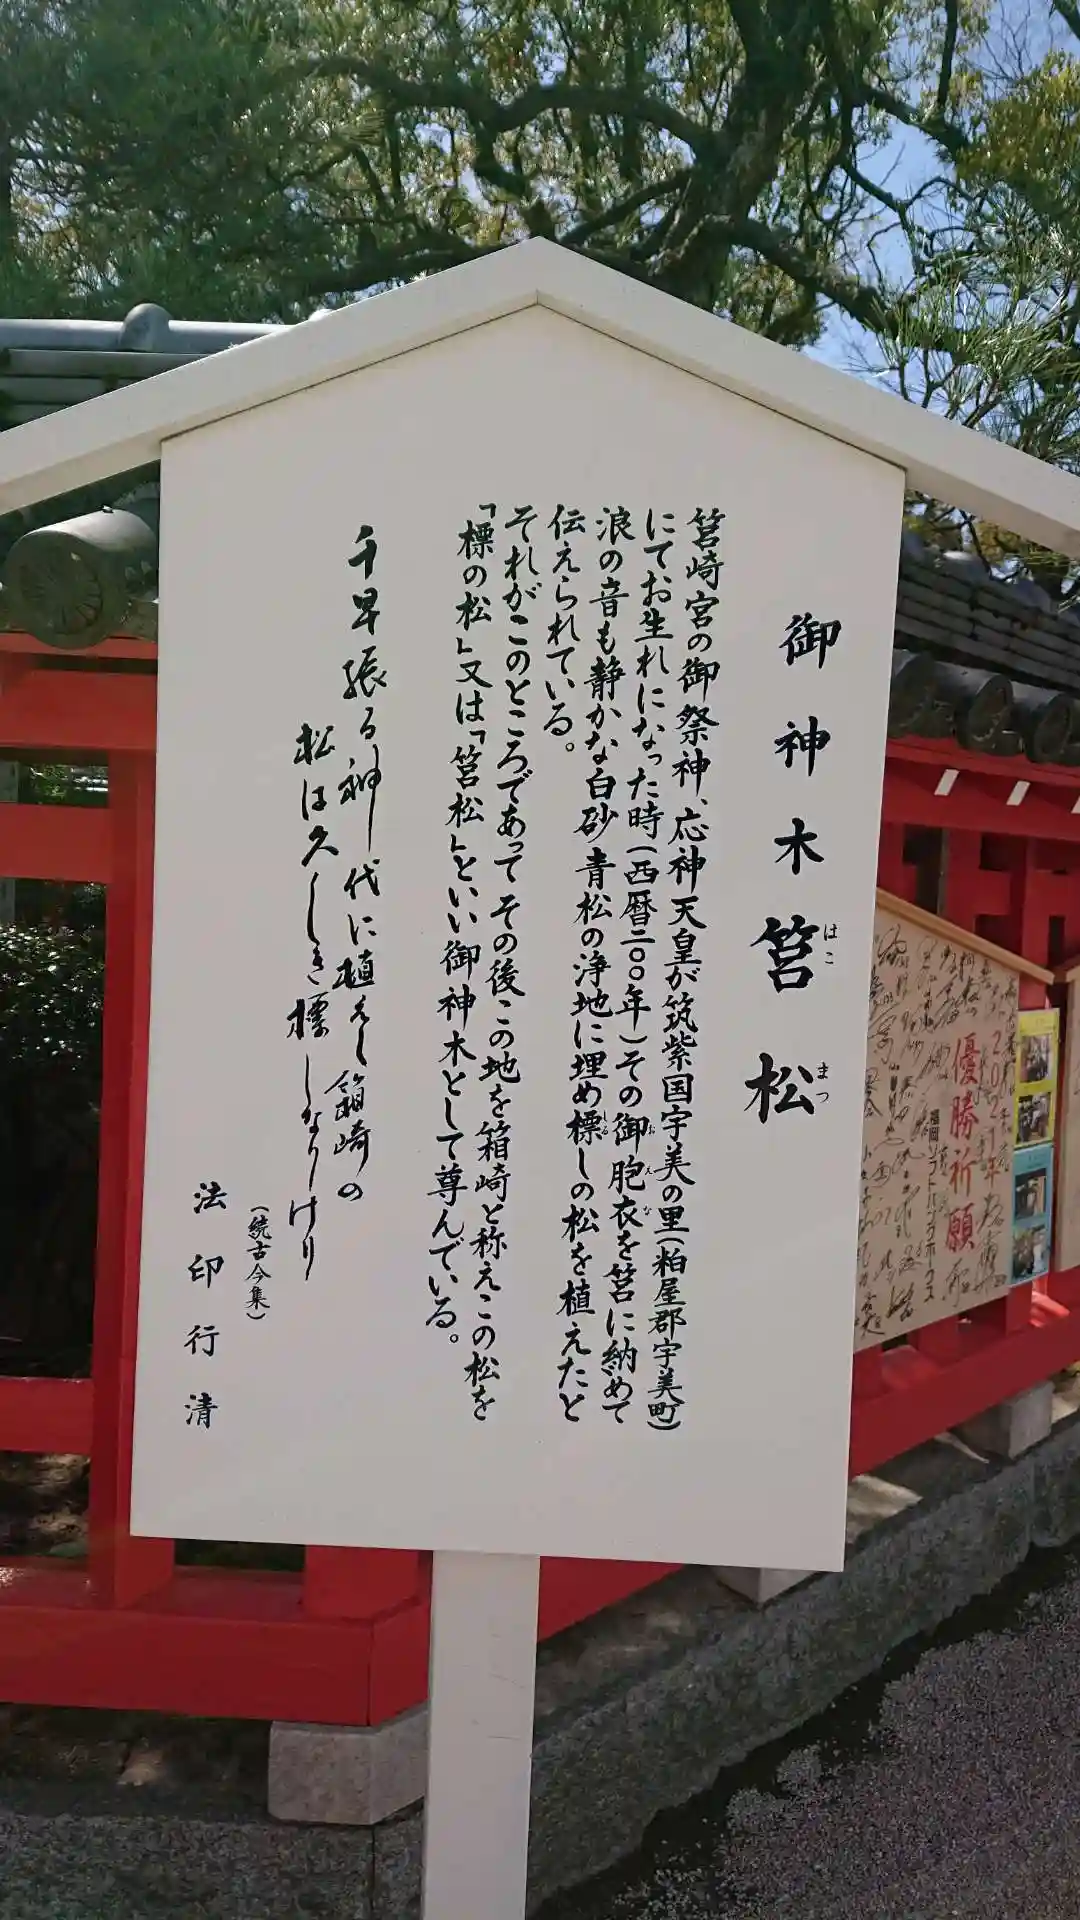 御神木筥松
はこ
まつ
筥崎宮の御祭神、応神天皇が筑紫国宇美の里(粕屋郡宇美町)
にてお生れになった時(西暦二〇〇年)その御胞衣を筥に納めて
おえな
浪の音も静かな白砂青松の浄地に埋め標しの松を植えたと
しる
伝えられている。
それがこのところであってその後この地を箱崎と称えこの松を
「標の松」又は「筥松」といい御神木として尊んでいる。
千早振る神代に植えし箱崎の
松は久しき標しなりけり
(続古今集)
法印行清
2021年
優勝祈願
福岡ソフトバンクホークス